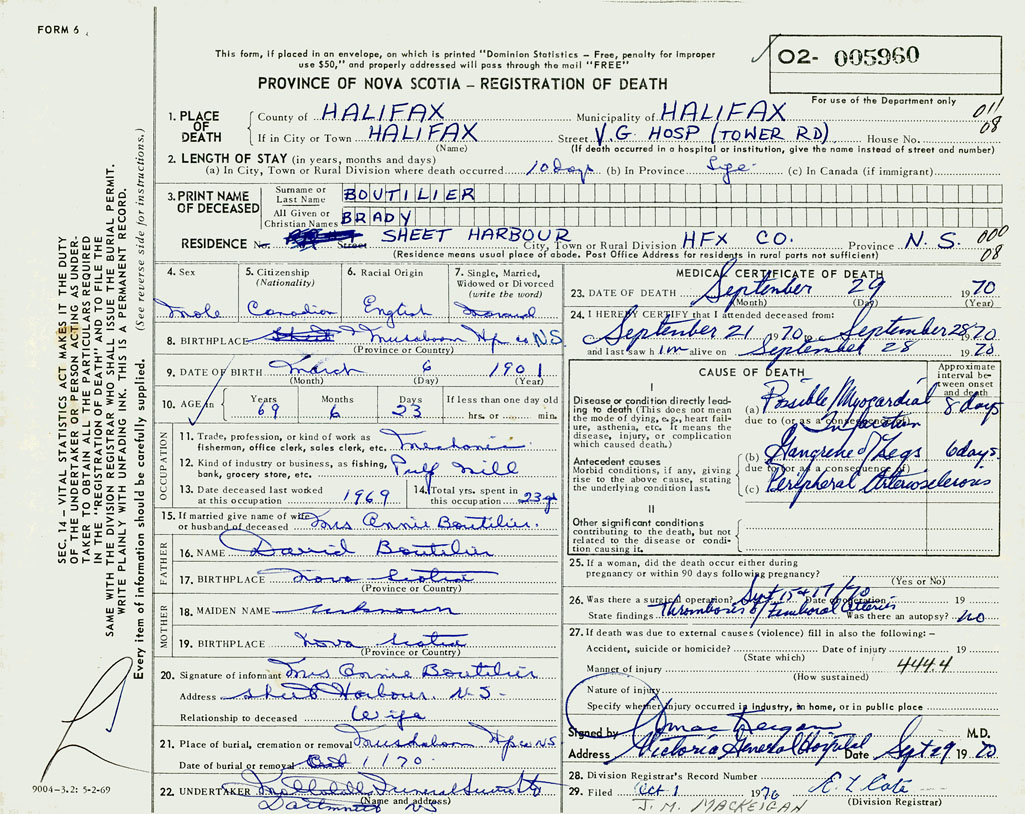 FORM 6
This form, if placed in an envelope, on which is printed "Dominion Statistics – Free, penalty for improper
use $50," and properly addressed will pass through the mail "FREE"
PROVINCE OF NOVA SCOTIA – REGISTRATION OF DEATH
O2- 005960
For use of the Department only
1. PLACE OF DEATH
County of HALIFAX Municipality of HALIFAX 011
If in City or Town HALIFAX Street V.G. HOSP (TOWER RD) House No. 08
(Name) (If death occurred in a hospital or institution, give the name instead of street and number)
2. LENGTH OF STAY (in years, months and days)
(a) In City, Town or Rural Division where death occurred 10 Days (b) In Province Lge (c) In Canada (if immigrant)
3. PRINT NAME OF DECEASED
Surname or Last Name BOUTILIER
All Given or Christian Names BRADY
RESIDENCE No. Street SHEET HARBOUR City, Town or Rural Division HFX CO. Province N. S. 000
(Residence means usual place of abode. Post Office Address for residents in rural parts not sufficient) 08
4. Sex 5. Citizenship (Nationality) 6. Racial Origin 7. Single, Married, Widowed or Divorced (write the word)
Male Canadian English Married
8. BIRTHPLACE Hfx co NS
(Province or Country)
9. DATE OF BIRTH March 6 1901
(Month) (Day) (Year)
10. AGE in Years Months Days If less than one day old
69 6 23 hrs. or min.
OCCUPATION
11. Trade, profession, or kind of work as fisherman, office clerk, sales clerk, etc. Mechanic
12. Kind of industry or business, as fishing, bank, grocery store, etc. Pulp Mill
13. Date deceased last worked at this occupation 1969 14. Total yrs. spent in this occupation 23 yr
15. If married give name of wife or husband of deceased Mrs Annie Boutilier.
FATHER
16. NAME David Boutilier
17. BIRTHPLACE Nova Scotia
(Province or Country)
MOTHER
18. MAIDEN NAME Unknown
19. BIRTHPLACE Nova Scotia
(Province or Country)
20. Signature of informant Mrs Annie Boutilier
Address Sheet Harbour. N.S.
Relationship to deceased Wife
21. Place of burial, cremation or removal Hfx co NS
Date of burial or removal Oct 1 170
22. UNDERTAKER Funeral
(Name and address)
Dartmouth NS
MEDICAL CERTIFICATE OF DEATH
23. DATE OF DEATH September 29 1970
(Month) (Day) (Year)
24. I HEREBY CERTIFY that I attended deceased from:
September 21 1970 to September 28 1970
and last saw him alive on September 28 1970
CAUSE OF DEATH
Approximate interval between onset and death
I
Disease or condition directly leading to death (This does not mean the mode of dying, e.g., heart failure, asthenia, etc. It means the disease, injury, or complication which caused death.)
(a) Possible Myocardial Infarction 8 days
due to (or as a consequence of)
Antecedent causes
Morbid conditions, if any, giving rise to the above cause, stating the underlying condition last.
(b) Gangrene of Legs 6 days
due to (or as a consequence of)
(c) Peripheral Arteriosclerosis
II
Other significant conditions contributing to the death, but not related to the disease or condition causing it.
25. If a woman, did the death occur either during
pregnancy or within 90 days following pregnancy?
(Yes or No)
26. Was there a surgical operation? Sept 15 + 17/70 Date of operation 19
State findings Thrombosis of Femoral Arteries Was there an autopsy? no
27. If death was due to external causes (violence) fill in also the following: –
Accident, suicide or homicide? Date of injury 19
(State which)
Manner of injury 444.4
(How sustained)
Nature of injury
Specify whether injury occurred in industry, in home, or in public place
Signed by M.D.
Address Victoria General Hospital Date Sept 29 1970
28. Division Registrar's Record Number
29. Filed Oct 1 1970
(Division Registrar)
J. M. MACKEIGAN
SEC. 14 – VITAL STATISTICS ACT MAKES IT THE DUTY
OF THE UNDERTAKER OR PERSON ACTING AS UNDER-
TAKER TO OBTAIN ALL THE PARTICULARS REQUIRED
IN THE "REGISTRATION OF DEATH" AND TO FILE THE
SAME WITH THE DIVISION REGISTRAR WHO SHALL ISSUE THE BURIAL PERMIT.
WRITE PLAINLY WITH UNFADING INK. THIS IS A PERMANENT RECORD.
Every item of information should be carefully supplied. (See reverse side for instructions.)
9004-3.2: 5-2-69